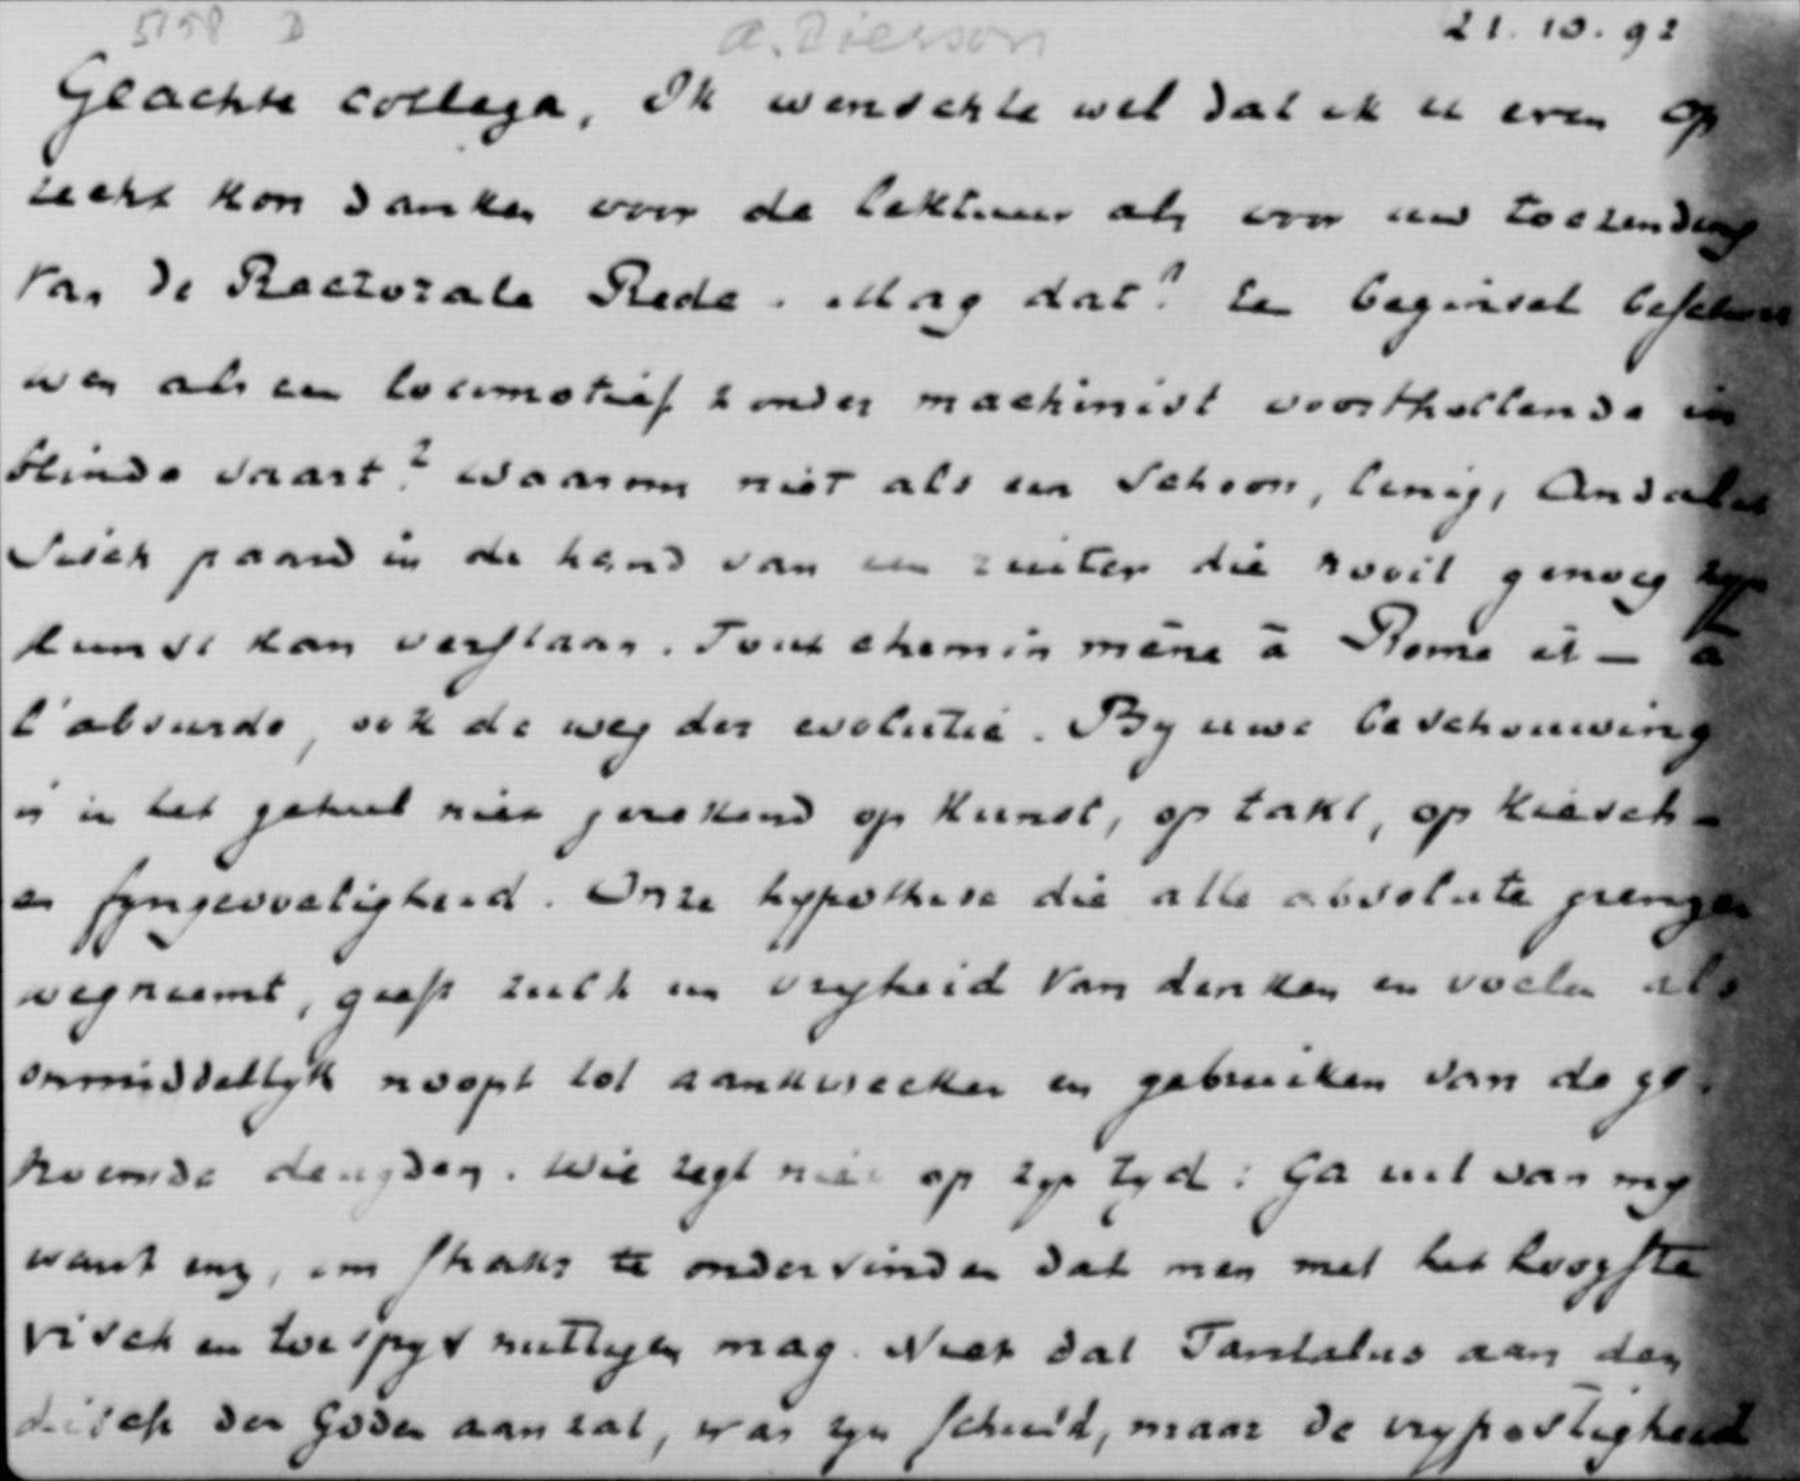 5158 D A. Pierson 21.10.92
Geachte collega, Ik wenschte wel dat ik u even op
recht kon danken voor de lektuur als voor uw toezending
van de Rectorale Rede. Mag dat? Een beginsel beschou
wen als een locomotief zonder machinist voorthollende in
blinde vaart? Waarom niet als een schoon, lenig, Andalu
sisch paard in de hand van een ruiter die nooit genoeg zyn
kunst kan verstaan. Tout chemin mène à Rome et — à
l'absurde, ook de weg der evolutie. By uwe beschouwing
is in het geheel niet gerekend op kunst, op takt, op kiesch-
en fyngevoeligheid. Onze hypothese die alle absolute grenzen
wegneemt, geeft zulk een vryheid van denken en voelen als
onmiddellyk noopt tot aankweeken en gebruiken van de ge.
noemde deugden. Wie zegt niet op zyn tyd: Ga uit van my
want enz, om straks te ondervinden dat men met het hoogste
visch en toespys nuttigen mag. Niet dat Tantalus aan den
disch der Goden aanzat, was zyn schuld, maar de vrypostigheid